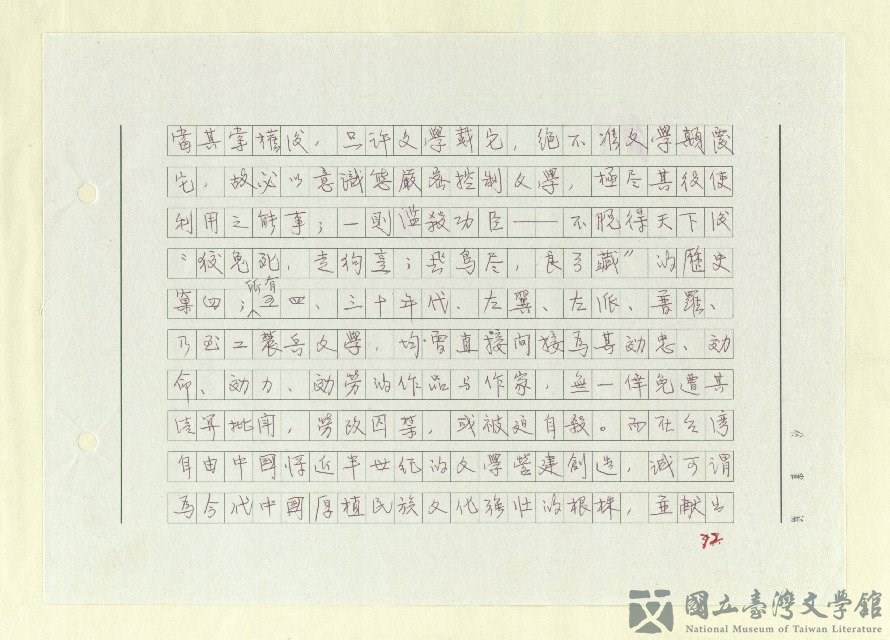 當其掌權後，只许文學載它，絕不准文學顛覆
它，故必以意識態嚴密控制文學，極尽其役使
利用之能事；一則濫殺功臣——不脫得天下後
“狡兔死，走狗烹；飛鳥尽，良弓藏”的歷史
所有
四、三十年代、左翼、左派、普羅、
乃至工農兵文學，均曾直接间接為其効忠、効
命、効力、効劳的作品与作家，無一倖免遭其
清算批鬥，勞改囚禁，或被迫自殺。而在台湾
自由中國将近半世纪的文學營建創造，誠可谓
為今代中國厚植民族文化强壮的根株，並献出
32
國立臺灣文學館
National Museum of Taiwan Literature